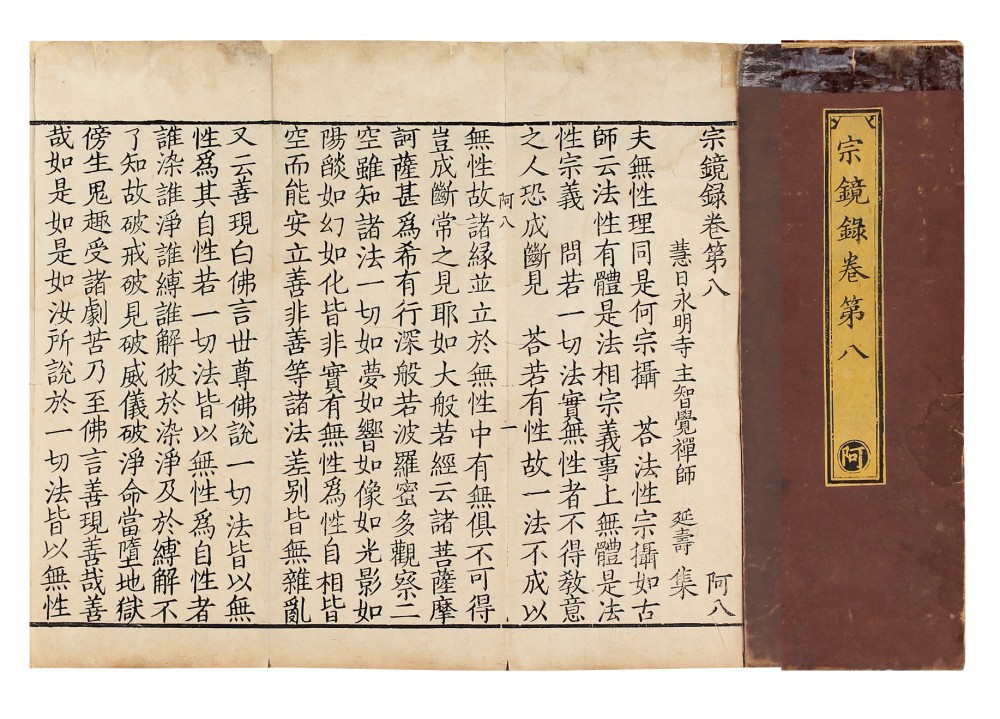 宗鏡錄卷第八
阿
宗鏡錄卷第八 阿八
慧日永明寺主智覺禪師 延壽 集
夫無性理同是何宗攝 荅法性宗攝如古
師云法性有體是法相宗義事上無體是法
性宗義 問若一切法實無性者不得教意
之人恐成斷見 荅若有性故一法不成以
阿八 一
無性故諸緣並立於無性中有無俱不可得
豈成斷常之見耶如大般若經云諸菩薩摩
訶薩甚爲希有行深般若波羅蜜多觀察二
空雖知諸法一切如夢如響如像如光影如
陽燄如幻如化皆非實有無性爲性自相皆
空而能安立善非善等諸法差别皆無雜亂
又云善現白佛言世尊佛說一切法皆以無
性爲其自性若一切法皆以無性爲自性者
誰染誰淨誰縛誰解彼於染淨及於縛解不
了知故破戒破見破威儀破淨命當墮地獄
傍生鬼趣受諸劇苦乃至佛言善現善哉善
哉如是如是如汝所說於一切法皆以無性